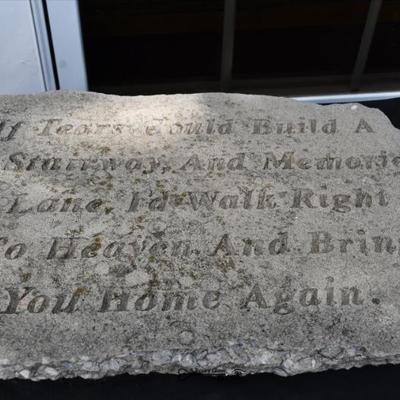 If Tears Could Build A
Stairway, And Memories
Lane, I'd Walk Right
To Heaven And Bring
You Home Again.